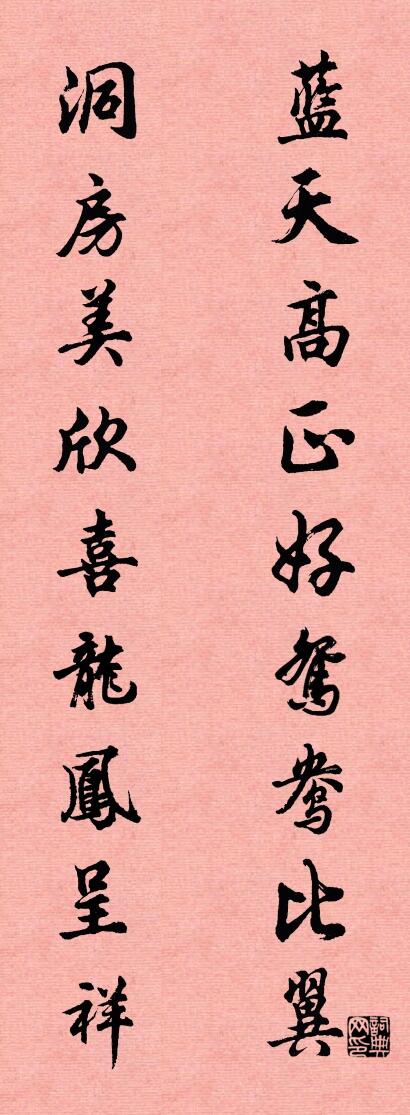 藍天高正好鴛鴦比翼
洞房美欣喜龍鳳呈祥
詞典网印